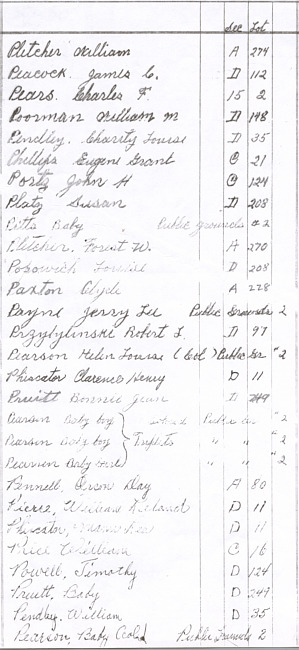 Sec Lot
Pletcher William A 274
Peacock. James C. D 112
Pears. Charles F. 15 2
Poorman William M D 198
Pendley. Charity Louise D 35
Phillips Eugene Grant C 21
Portz John H C 124
Platz Susan D 208
Pitts Baby Public Grounds #2
Pletcher. Forest W. A 270
Posowich Louise D 208
Paxton Clyde A 228
Payne Jerry Lee Public Grounds 2
Przybylinski Robert L. D 97
Pearson Helen Louise (Col) Public Gr "2
Phiscator Clarence Henry D 11
Pruitt Bonnie Jean D 249
Pearson Baby boy Public Gr "2
Pearson Baby boy Triplets " " "2
Pearson Baby " " "2
Pennell, Orson Day A 80
Pierce, William Richard D 11
Phiscator, D 11
Price William C 16
Powell, Timothy D 124
Pruitt, Baby D 249
Pendley, William D 35
Pearson, Baby Public Grounds 2